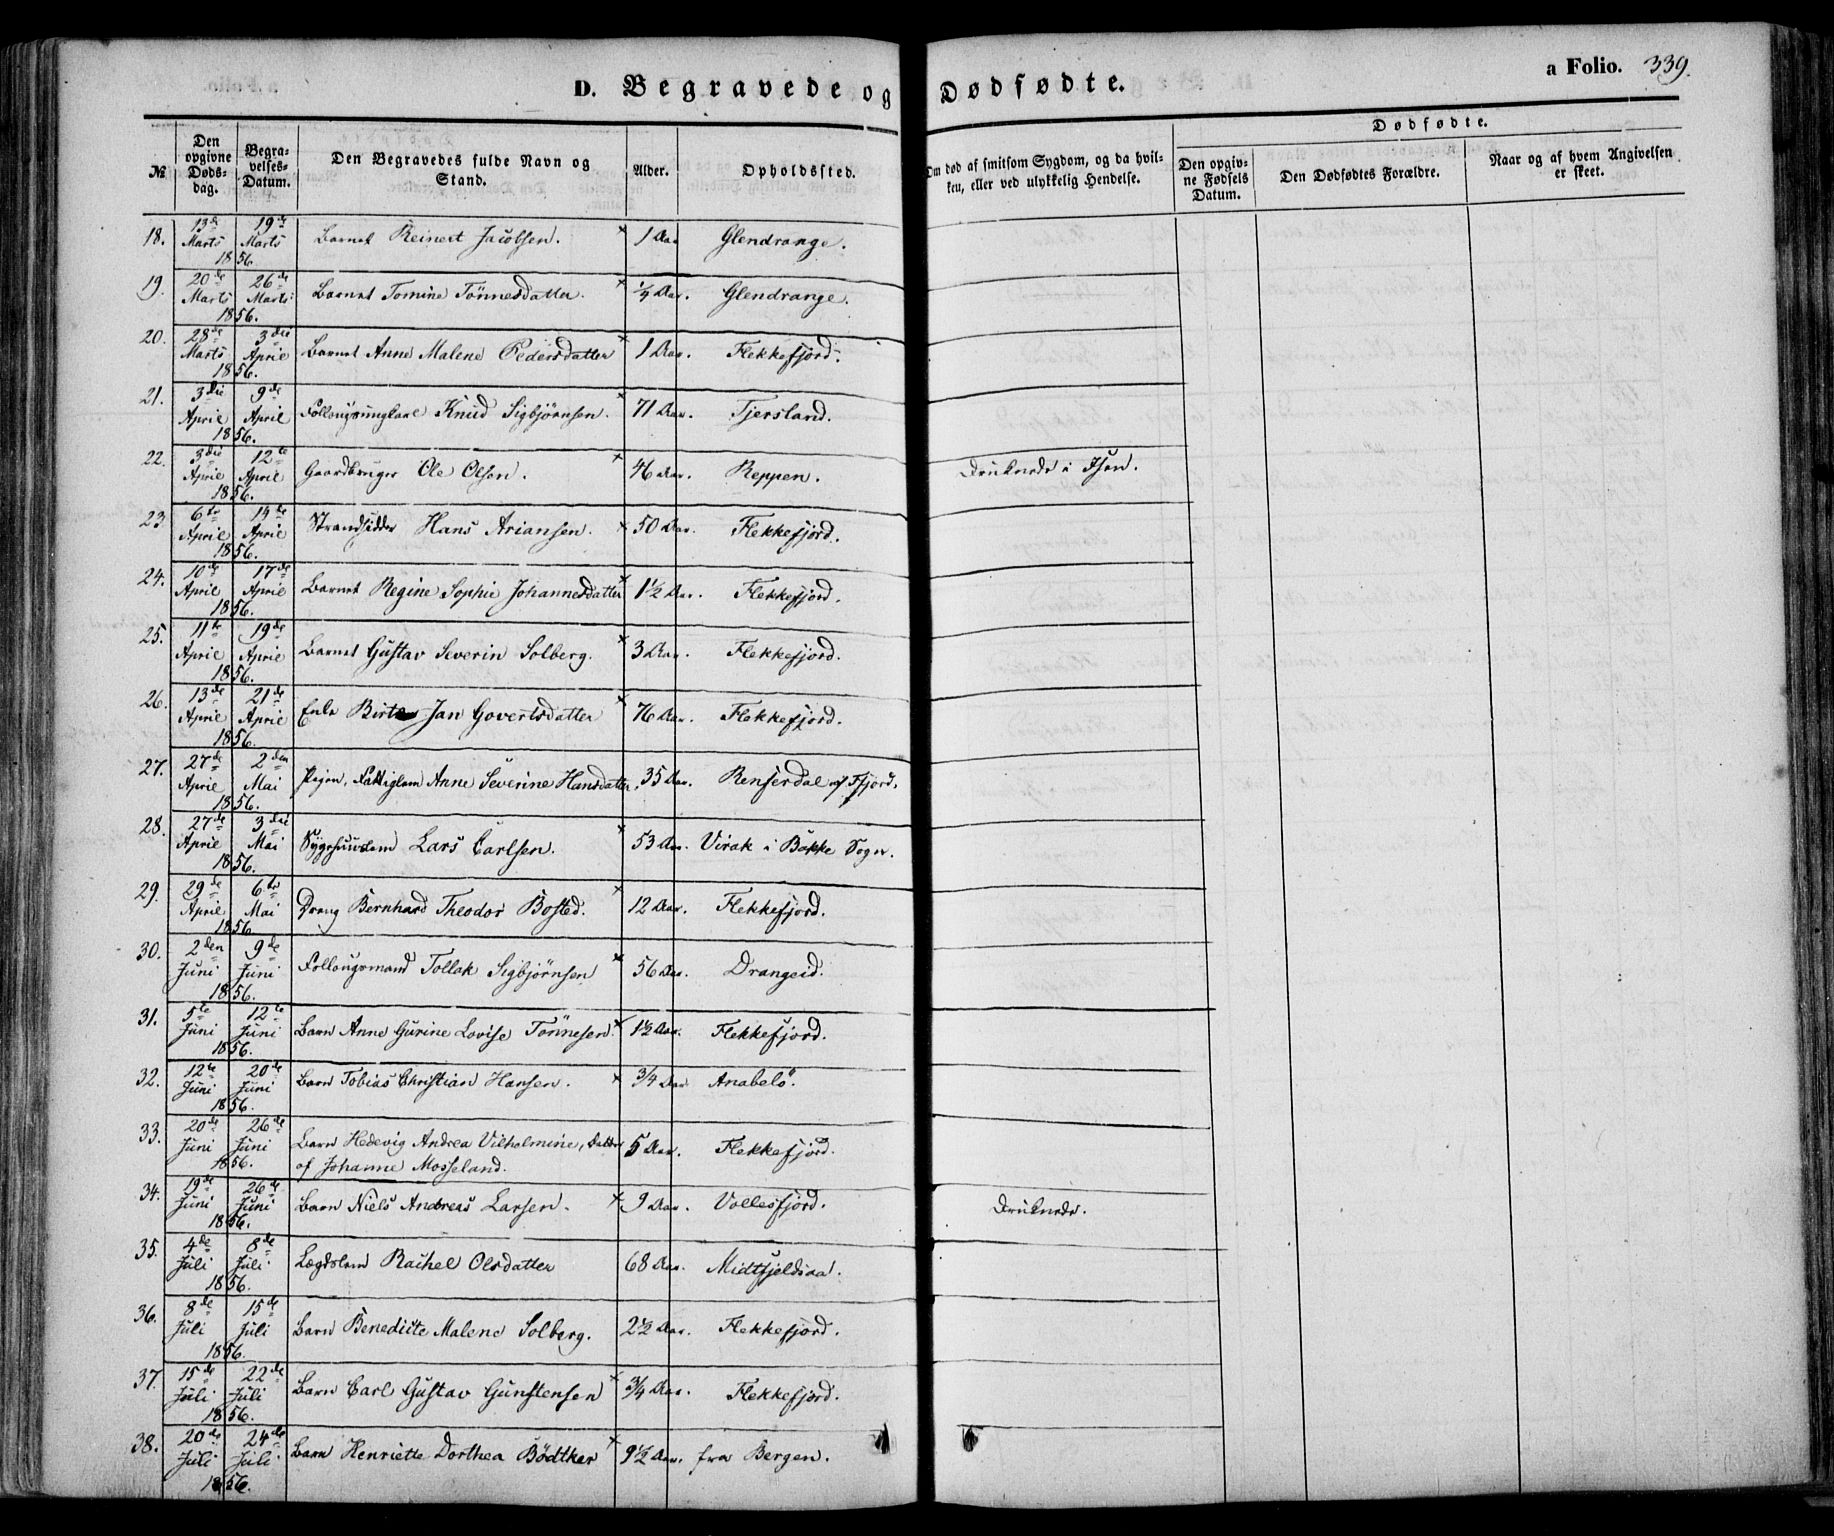 a Folio. 339.
D. Begravede og Dødfødte.
Dødfødte.
No.
Den opgivne Døds-dag.
Begra-velses-Datum.
Den Begravedes fulde Navn og Stand.
Alder.
Opholdssted.
Om død af smitsom Sygdom, og da hvil-ken, eller ved ulykkelig Hendelse.
Den opgiv-ne Fødsels Datum.
Den Dødfødtes Forældre.
Naar og af hvem Angivelsen er skeet.
18. 13de Marts 19de Marts 1856. Barnet Reinert Jacobsen. × 1 Aar Glendrange.
19. 20de Marts 26de Marts 1856. Barnet Tomine Tönnesdatter. × Aar. Glendrange.
20. 28de Marts 3die April 1856. Barnet Anne Malene Pedersdatter × 1 Aar. Flekkefjord.
21. 3die April 9de April 1856. Knud Sigbjørnsen. × 71 Aar. Tjersland.
22. 3die April 12te April 1856. Gaardbruger Ole Olsen. × 46 Aar. Reppen. Druknede i Isen.
23 6te April 14de April 1856. Strandsidder Hans Ariansen. × 50 Aar. Flekkefjord.
24. 10de April 17de April 1856. Barnet Regine Sophie Johannesdatter × 1½ Aar. Flekkefjord.
25. 11te April 19de April 1856. Barnet Gustav Severin Solberg. × 3 Aar. Flekkefjord.
26. 13de April 21de April 1856. Enke Birte Jan Govertsdatter × 76 Aar. Flekkefjord.
27. 27de April 2den Mai 1856. Pigen, Fattiglem Anne Severine Hansdatter. 35 Aar. Renserdal af Ffjord.
28. 27de April 3die Mai 1856. Lars Carlsen. × 53 Aar. Virak i Bakke Sogn.
29. 29de April 6te Mai 1856. Dreng Bernhard Theodor Bosted. × 12 Aar. Flekkefjord.
30. 2den Juni 9de Juni 1856. Follougsmand Tollak Sigbjørnsen × 56 Aar. Drangeid.
31. 5te Juni 12te Juni 1856. Barn Anne Gurine Lovise Tönnesen × 1½ Aar. Flekkefjord.
32. 12te Juni 20de Juni 1856. Barn Tobias Christian Hansen. × 3/4 Aar Anabelö.
33. 20de Juni 26de Juni 1856. Barn Hedevig Andrea Vilhelmine, Datter 5 Aar. Flekkefjord.
af Johanne Mosseland.
34. 19de Juni 26de Juni 1856. Barn Niels Andreas Larsen. × 9 Aar. Vollesfjord. Druknede.
35. 4de Juli 8de Juli 1856. Lægdslem Rachel Olsdatter 68 Aar. Midtfjeldsaa.
36. 8de Juli 15de Juli 1856. Barn Benedicte Malene Solberg. 2½ Aar. Flekkefjord.
37. 15de Juli 22de Juli 1856. Barn Carl Gustav Gunstensen × 3/4 Aar. Flekkefjord.
38. 20de Juli 24de Juli 1856. Barn Henriette Dorthea Bödtker × 9½ Aar. fra Bergen.